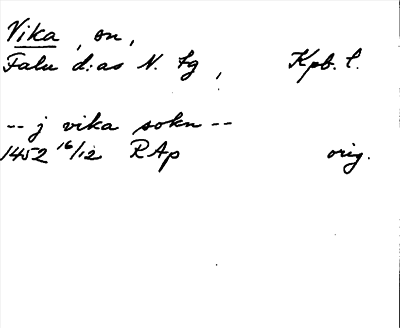 Vika, sn,
Falu d:as N. tg, Kpb. l.
-- j vika sokn --
1452 16/12 RAp orig.